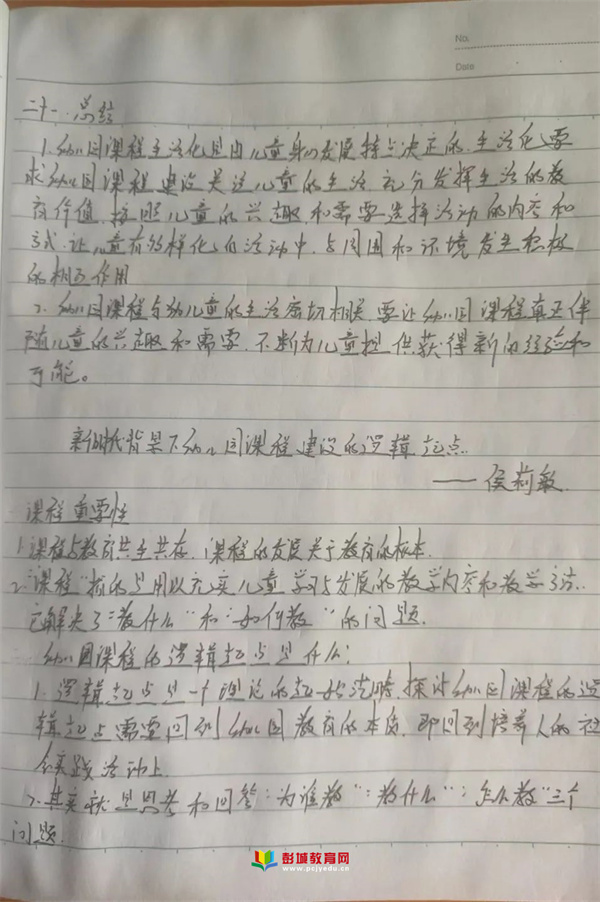 No.
Date
二十一、总结
1.幼儿园课程生活化是由儿童身心发展特点决定的.生活化要
求幼儿园课程建设关注儿童的生活充分发挥生活的教
育价值.按照儿童的兴趣和需要选择活动的内容和
方式.让儿童在多样化的活动中.与周围和环境发生积极
的相互作用
2.幼儿园课程与幼儿童的生活密切相关.要让幼儿园课程真正伴
随儿童的兴趣和需要.不断为儿童提供获得新的经验和
可能。
新时代背景下幼儿园课程建设的逻辑起点.
——侯莉敏.
课程重要性
1.课程与教育共生共存.课程的发展关于教育的根本.
2."课程"指的是用以充实儿童学习与发展的教学内容和教学方法.
它解决了"教什么"和"如何教"的问题.
幼儿园课程的逻辑起点是什么:
1.逻辑起点是一个理论的起始范畴.探讨幼儿园课程的逻
辑起点需要回到幼儿园教育的本质.即回到培养人的社
会实践活动上.
2.其实就是思考和回答:"为谁教":"教什么":"怎么教"三个
问题.
彭城教育网
www.pcjyedu.cn